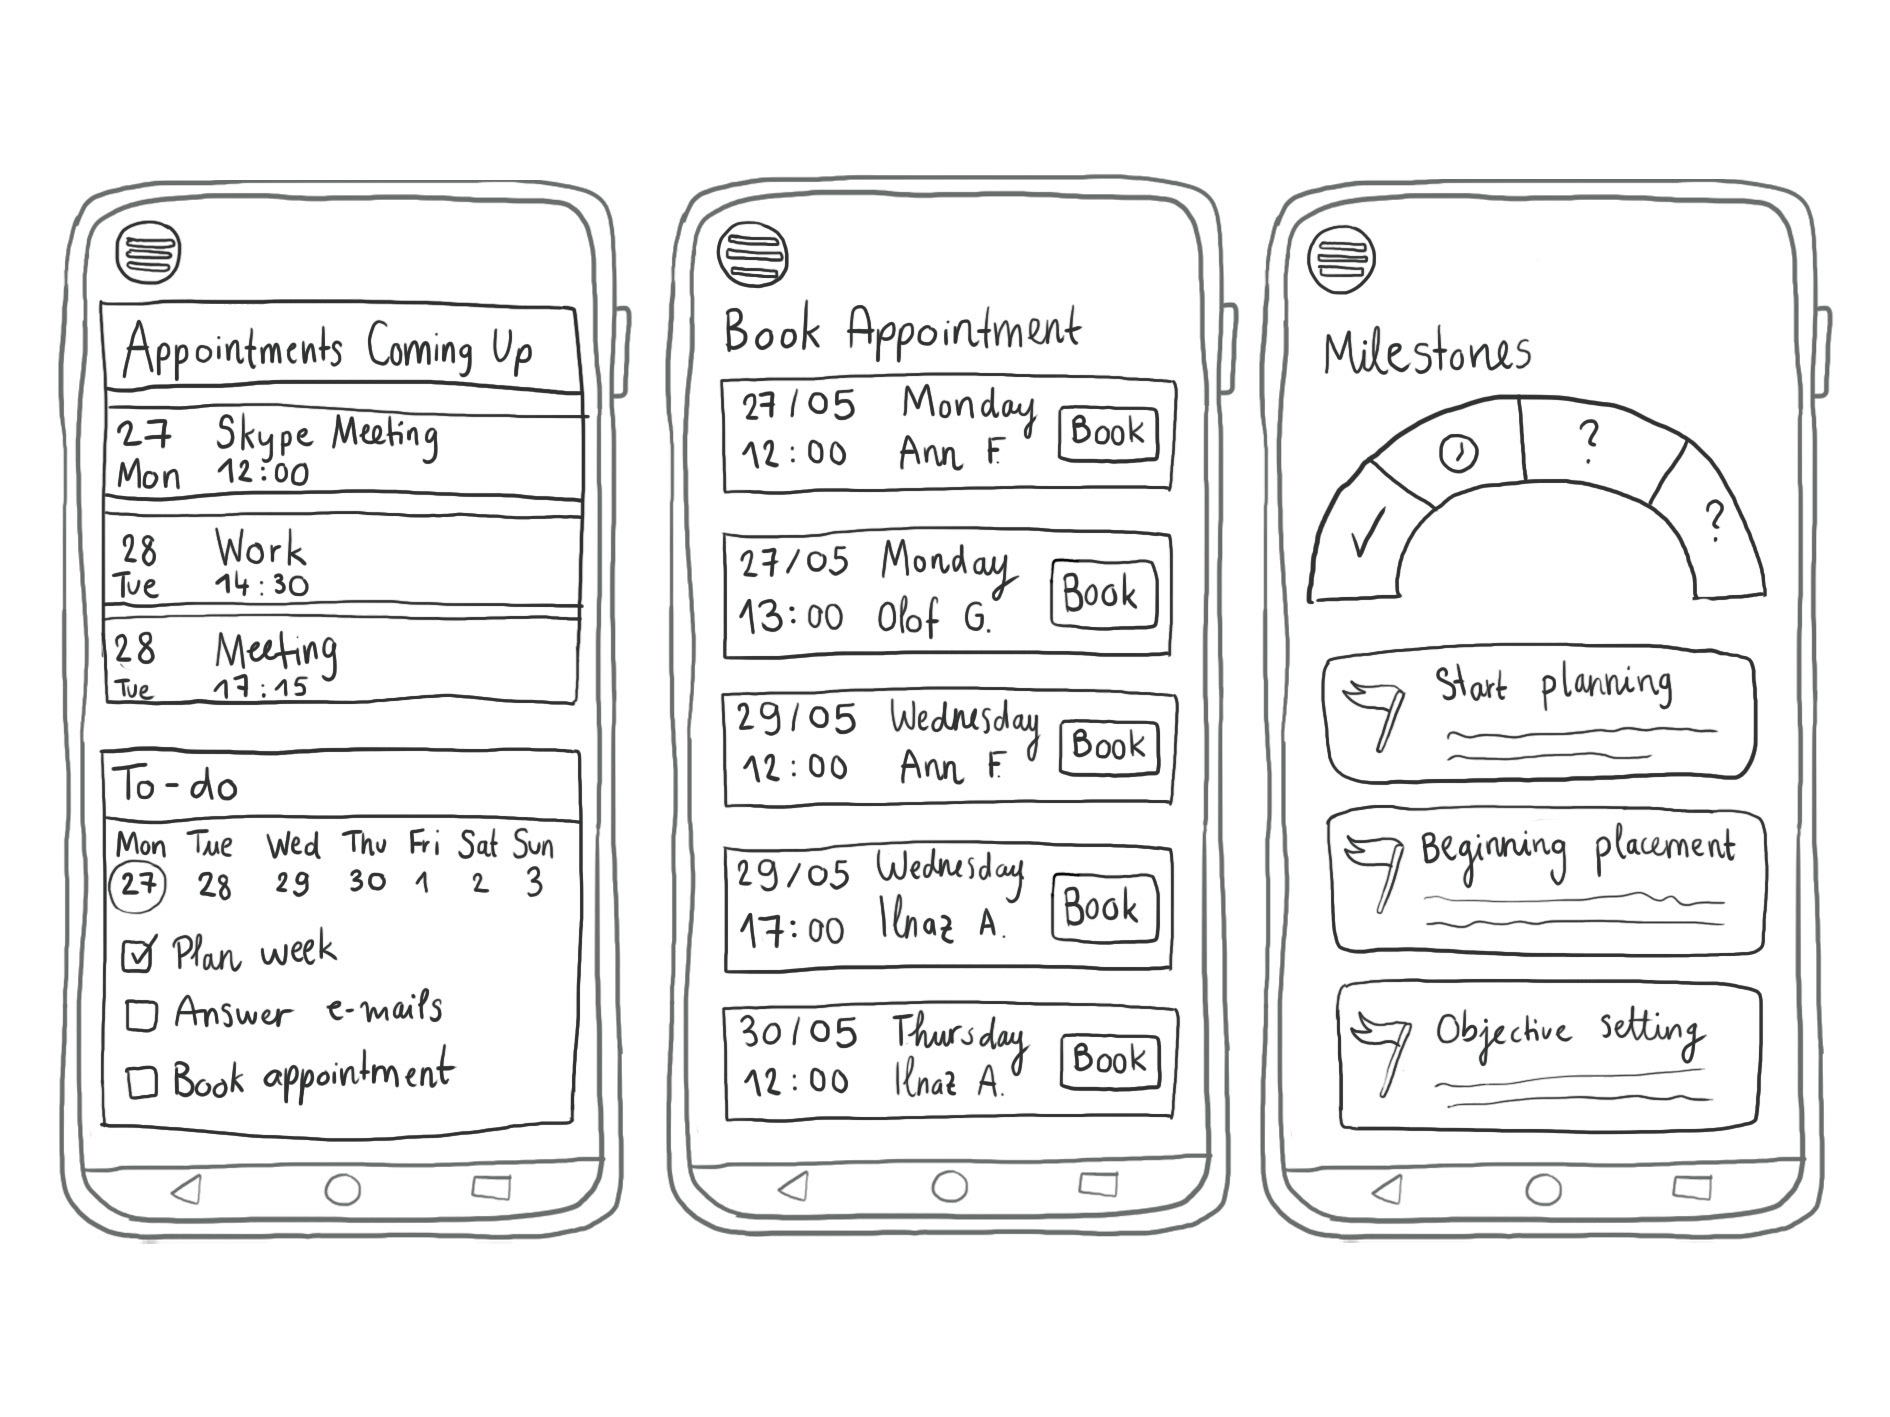 Appointments Coming Up
27 Skype Meeting
Mon 12:00
28 Work
Tue 14:30
28 Meeting
Tue 17:15
To-do
Mon Tue Wed Thu Fri Sat Sun
27 28 29 30 1 2 3
Plan week
Answer e-mails
Book appointment
Book Appointment
27/05 Monday
12:00 Ann F.
Book
27/05 Monday
13:00 Olof G.
Book
29/05 Wednesday
12:00 Ann F.
Book
29/05 Wednesday
17:00 Ilnaz A.
Book
30/05 Thursday
12:00 Ilnaz A.
Book
Milestones
?
?
Start planning
Beginning placement
Objective setting